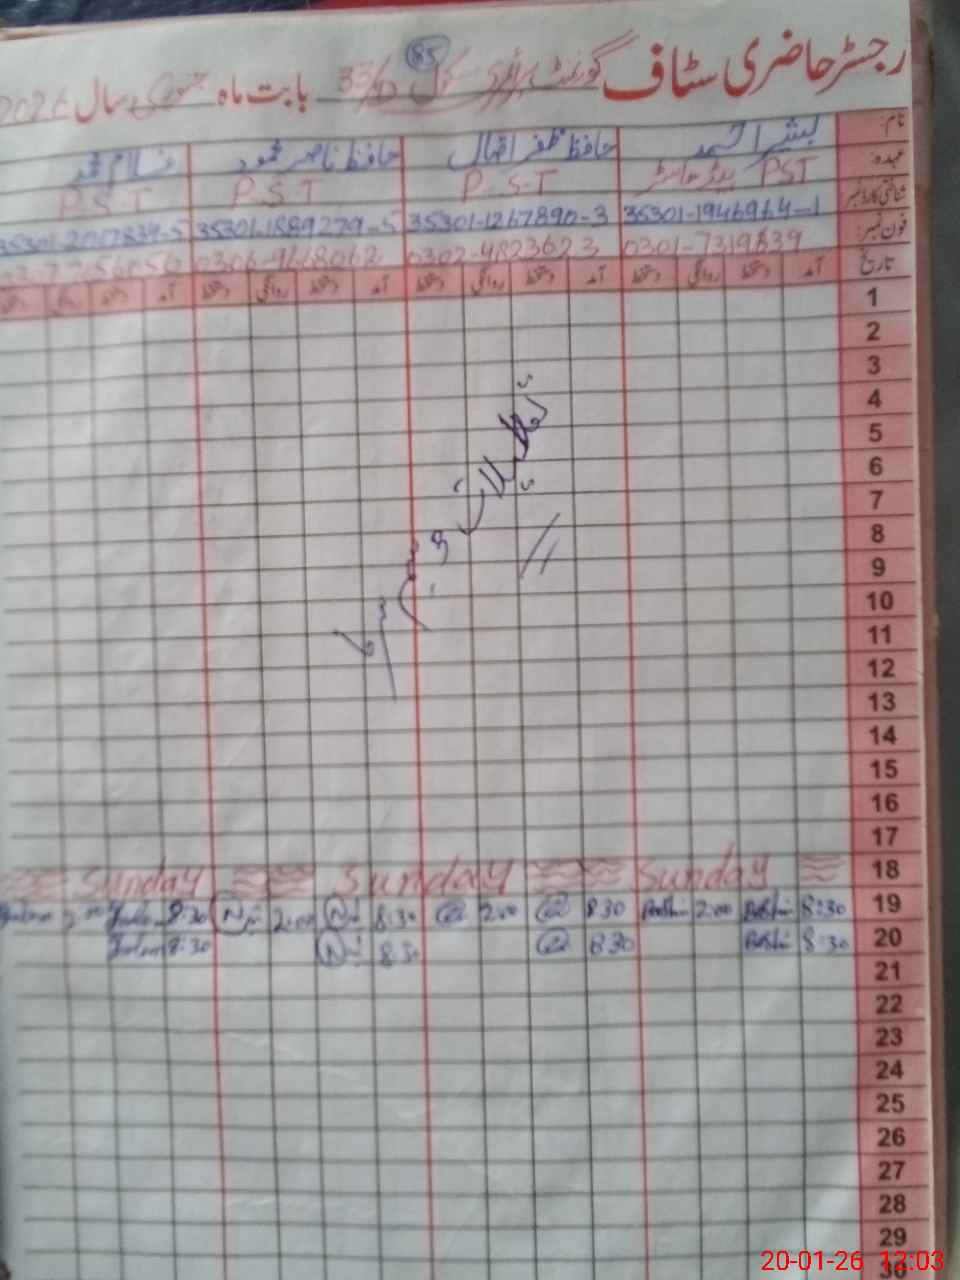 85
رجسٹر حاضری سٹاف گورنمنٹ پرائمری سکول 33/D بابت ماہ جنوری سال 2026
نام: بشیر احمد حافظ ظفر اقبال حافظ ناصر محمود غلام محمد
عہدہ: PST ہیڈ ماسٹر P-S-T P-S-T P-S-T
شناختی کارڈ نمبر 35301-1946964-1 35301-1267890-3 35301-1889279-5 35301-2017834-5
فون نمبر: 0301-7319839 0302-4823623 0306-9668062
تاریخ آمد دستخط روانگی دستخط آمد دستخط روانگی دستخط آمد دستخط روانگی دستخط آمد دستخط روانگی دستخط
1
2
3
4
5
6
7
8
9
10
11
12
13
14
15
16
17
تعطیلات موسم سرما
18 Sunday Sunday Sunday
19 8:30 Bashir 2:00 Bashir 8:30 2:00 8:30 2:00 8:30 2:00
20 8:30 Bashir 8:30 8:30 8:30
21
22
23
24
25
26
27
28
29
30
20-01-26 12:03